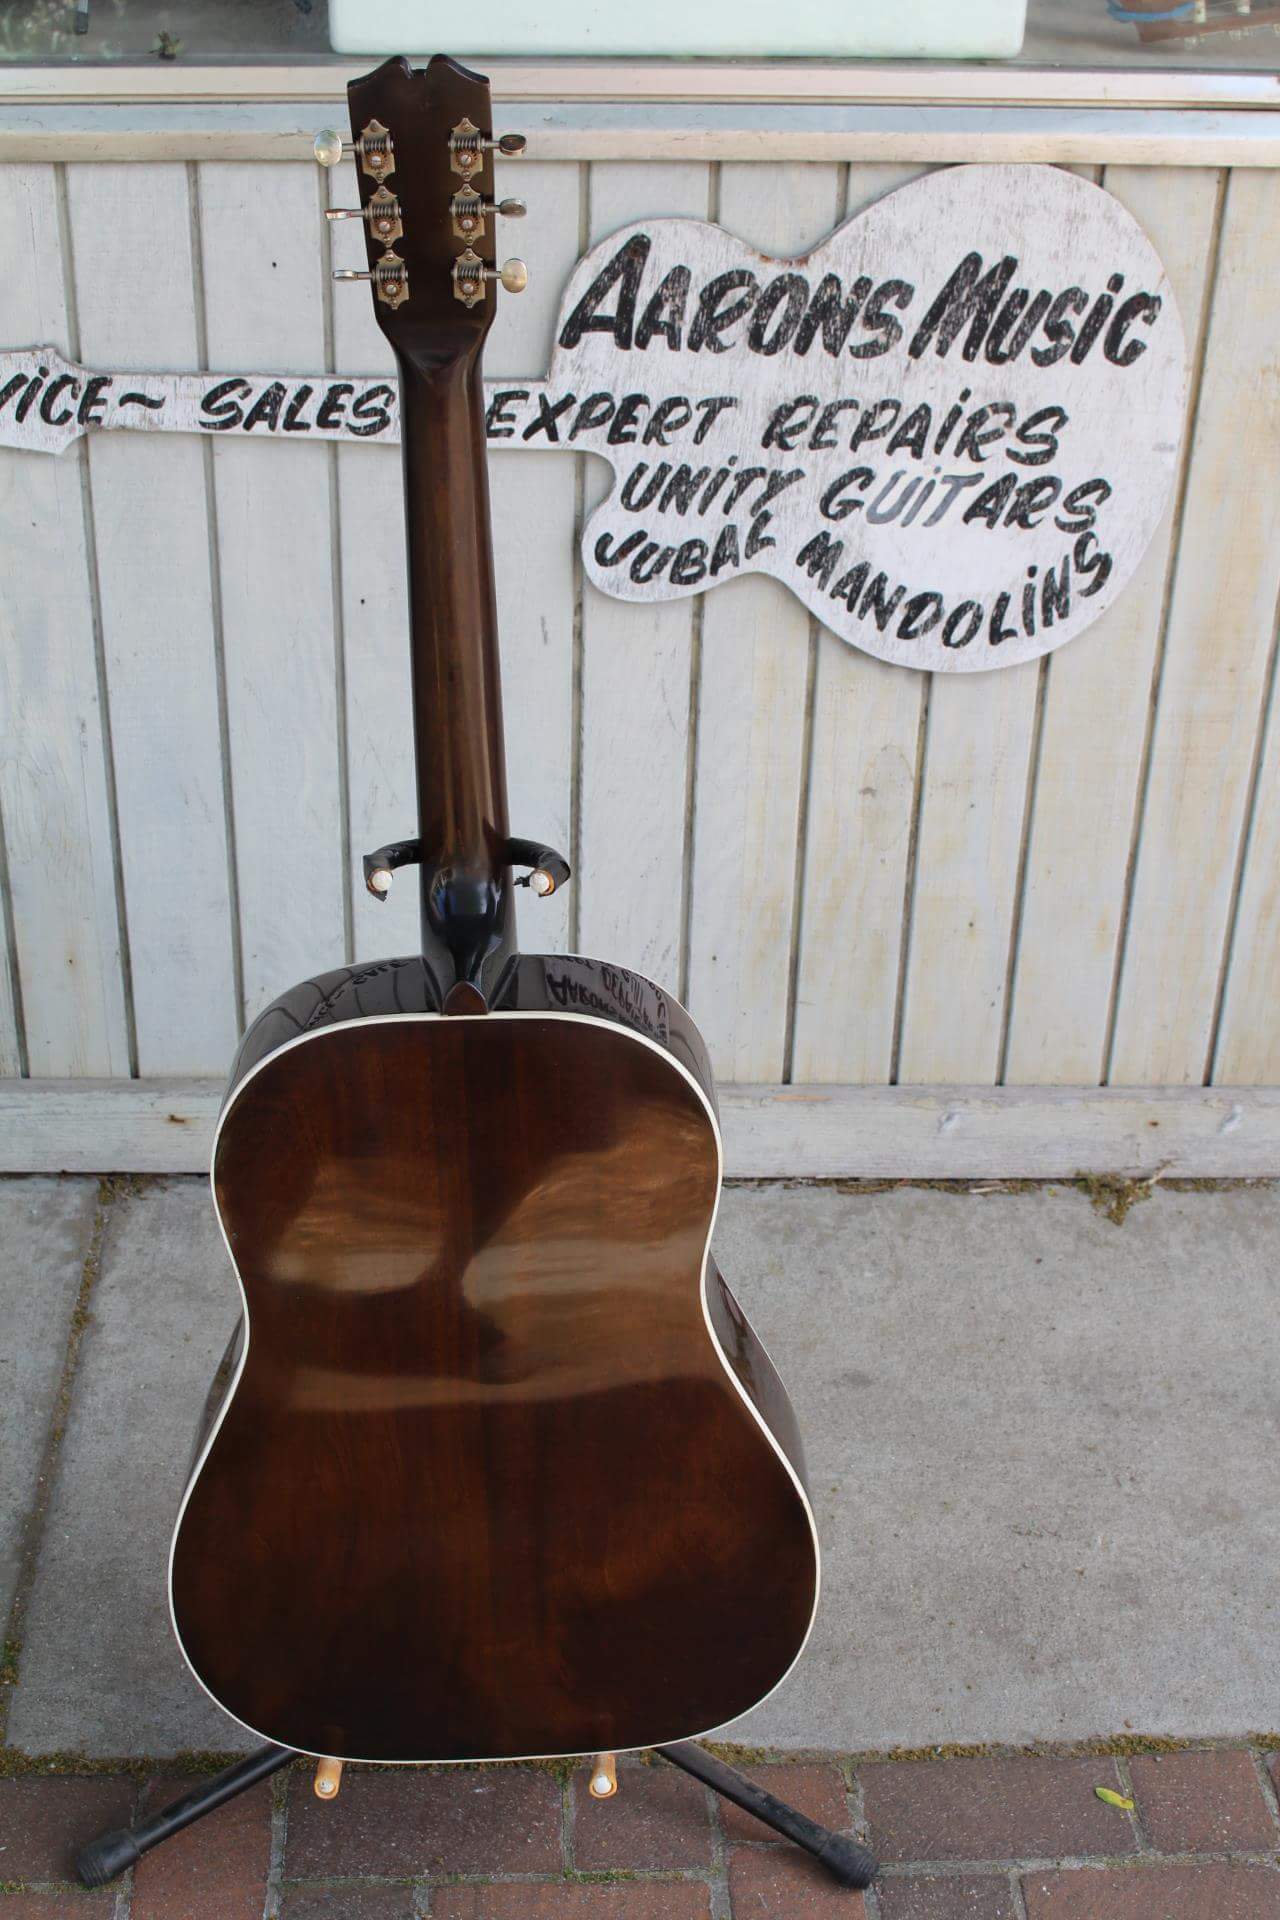 AARONS MUSIC
VICE~ SALES EXPERT REPAIRS
UNITY GUITARS
JUBAL MANDOLINS